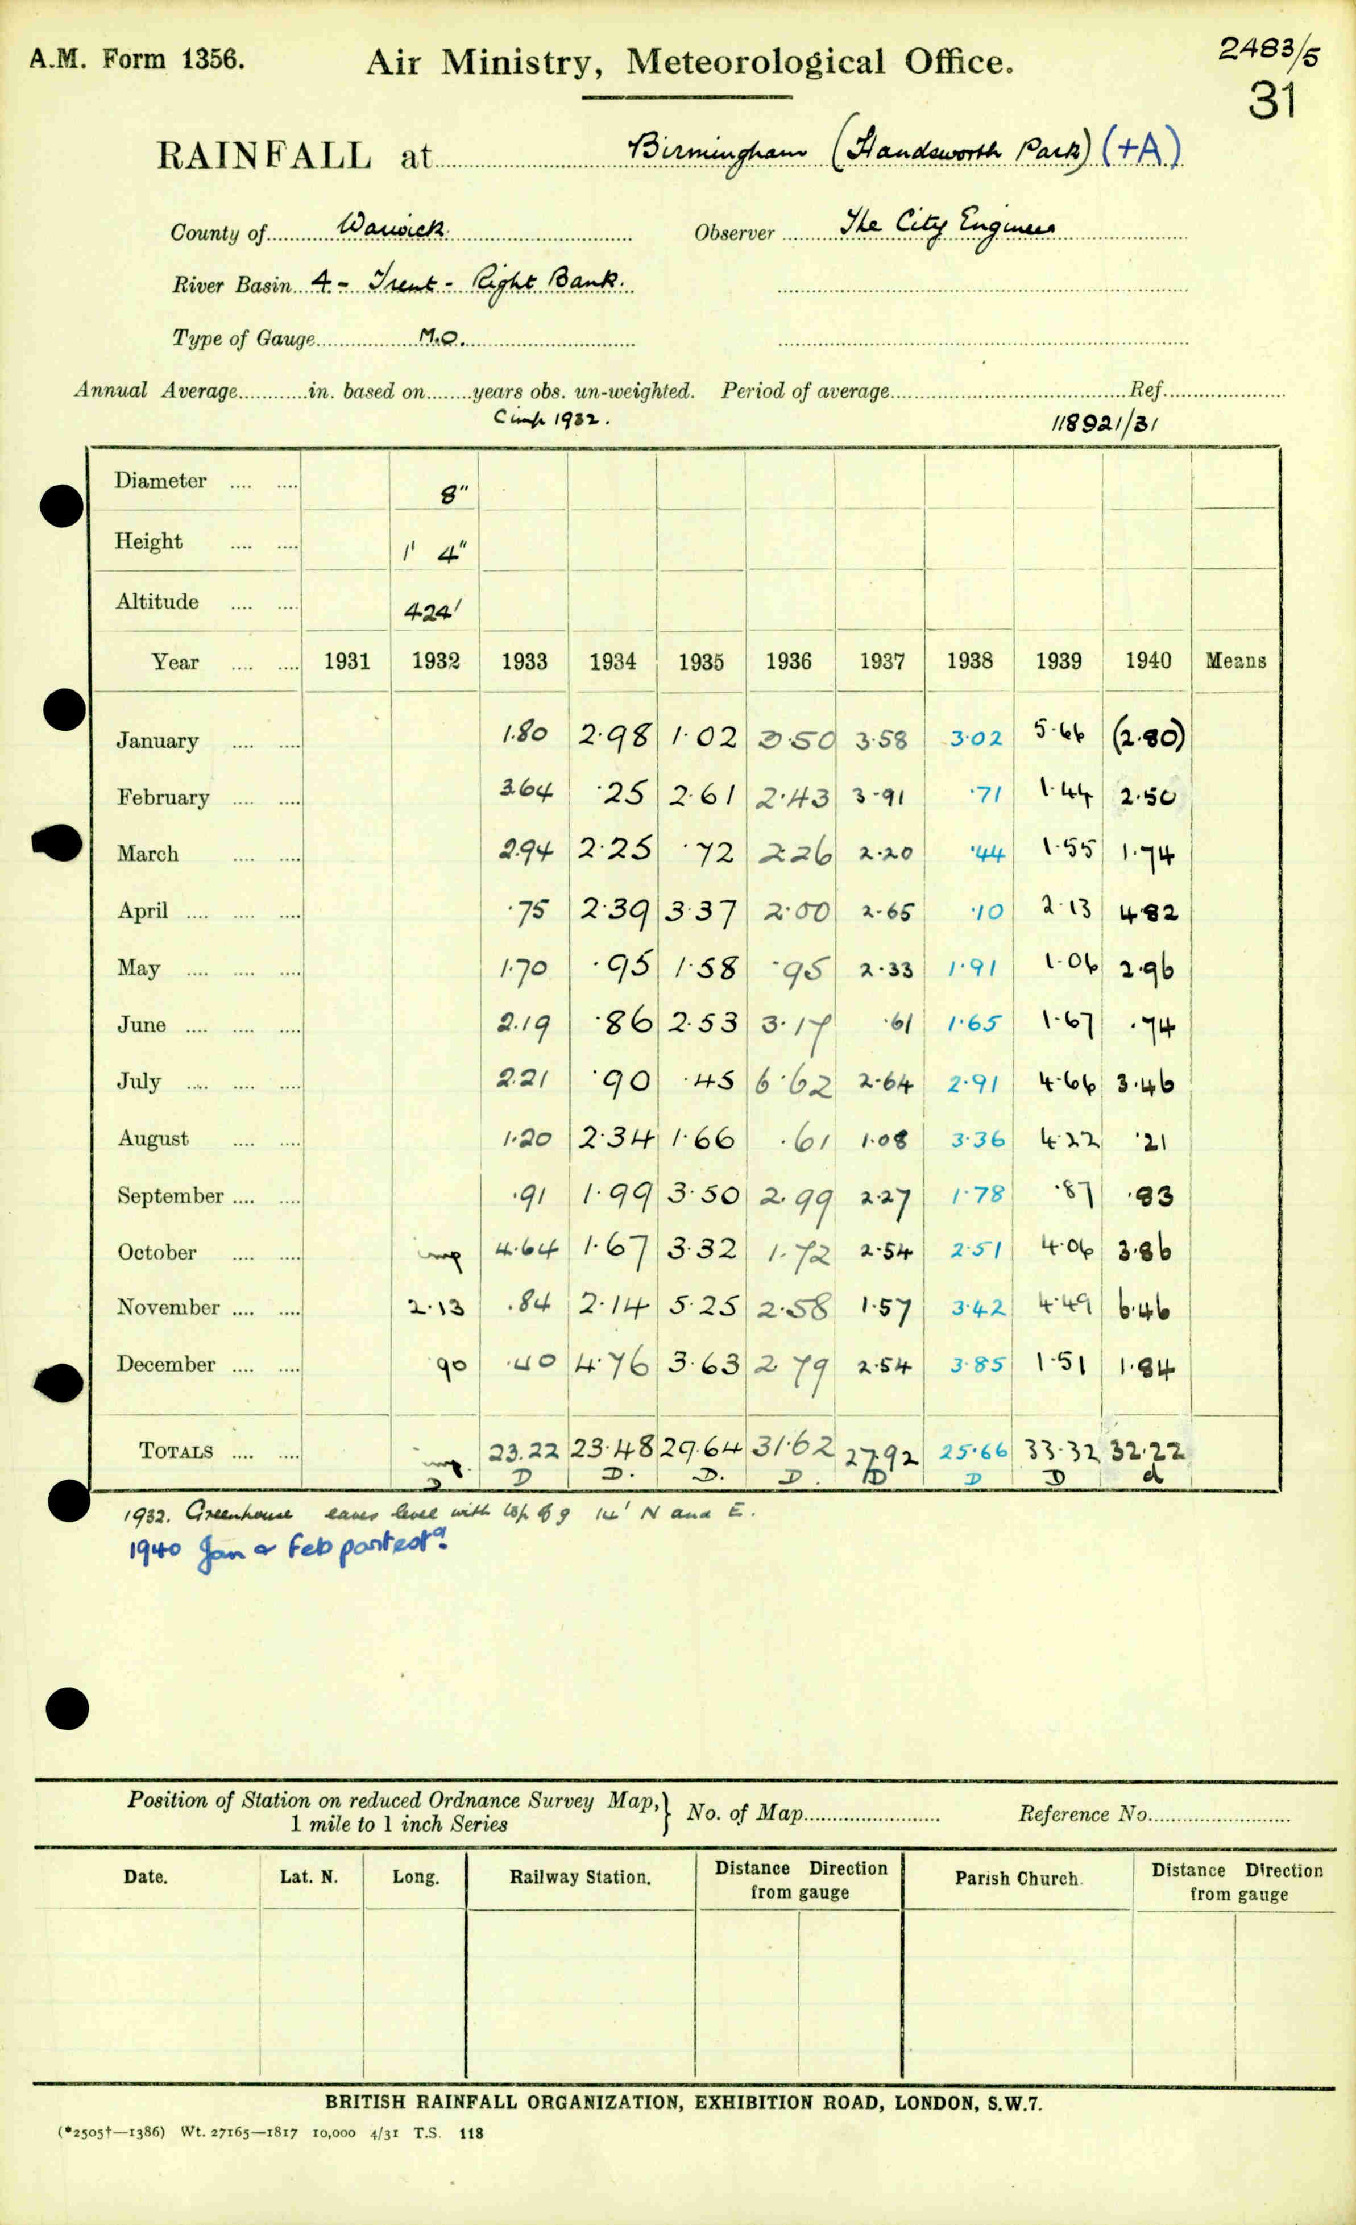 2483/5
A.M. Form 1356. Air Ministry, Meteorological Office.
31
RAINFALL at Birmingham (Handsworth Park) (+A)
County of Warwick. Observer The City Engineer
River Basin 4 - Trent - Right Bank.
Type of Gauge M.O.
Annual Average in. based on years obs. un-weighted. Period of average Ref.
1932. 118921/31
Diameter .... .... 8"
Height .... .... 1' 4"
Altitude .... .... 424'
Year .... .... 1931 1932 1933 1934 1935 1936 1937 1938 1939 1940 Means
January .... .... 1.80 2.98 1.02 3.50 3.58 3.02 5.66 (2.80)
February .... .... 3.64 .25 2.61 2.43 3.91 .71 1.44 2.50
March .... .... 2.94 2.25 .72 2.26 2.20 .44 1.55 1.74
April .... .... .... .75 2.39 3.37 2.00 2.65 .10 2.13 4.82
May .... .... .... 1.70 .95 1.58 .95 2.33 1.91 1.06 2.96
June .... .... .... 2.19 .86 2.53 3.17 .61 1.65 1.67 .74
July .... .... .... 2.21 .90 .45 6.62 2.64 2.91 4.66 3.46
August .... .... 1.20 2.34 1.66 .61 1.08 3.36 4.22 .21
September .... .... .91 1.99 3.50 2.99 2.27 1.78 .87 .83
October .... .... imp 4.64 1.67 3.32 1.72 2.54 2.51 4.06 3.86
November .... .... 2.13 .84 2.14 5.25 2.58 1.57 3.42 4.49 6.46
December .... .... 90 .40 4.76 3.63 2.79 2.54 3.85 1.51 1.84
TOTALS .... .... imp. 23.22 23.48 29.64 31.62 27.92 25.66 33.32 32.22
D D D. D. D. D D D d
1932. Greenhouse eaves level with top of g 14' N and E.
1940 Jan & Feb part estd
Position of Station on reduced Ordnance Survey Map, } No. of Map Reference No.
1 mile to 1 inch Series
Date. Lat. N. Long. Railway Station. Distance Direction from gauge Parish Church. Distance Direction from gauge
BRITISH RAINFALL ORGANIZATION, EXHIBITION ROAD, LONDON, S.W.7.
(*2505†—1386) Wt. 27165—1817 10,000 4/31 T.S. 118